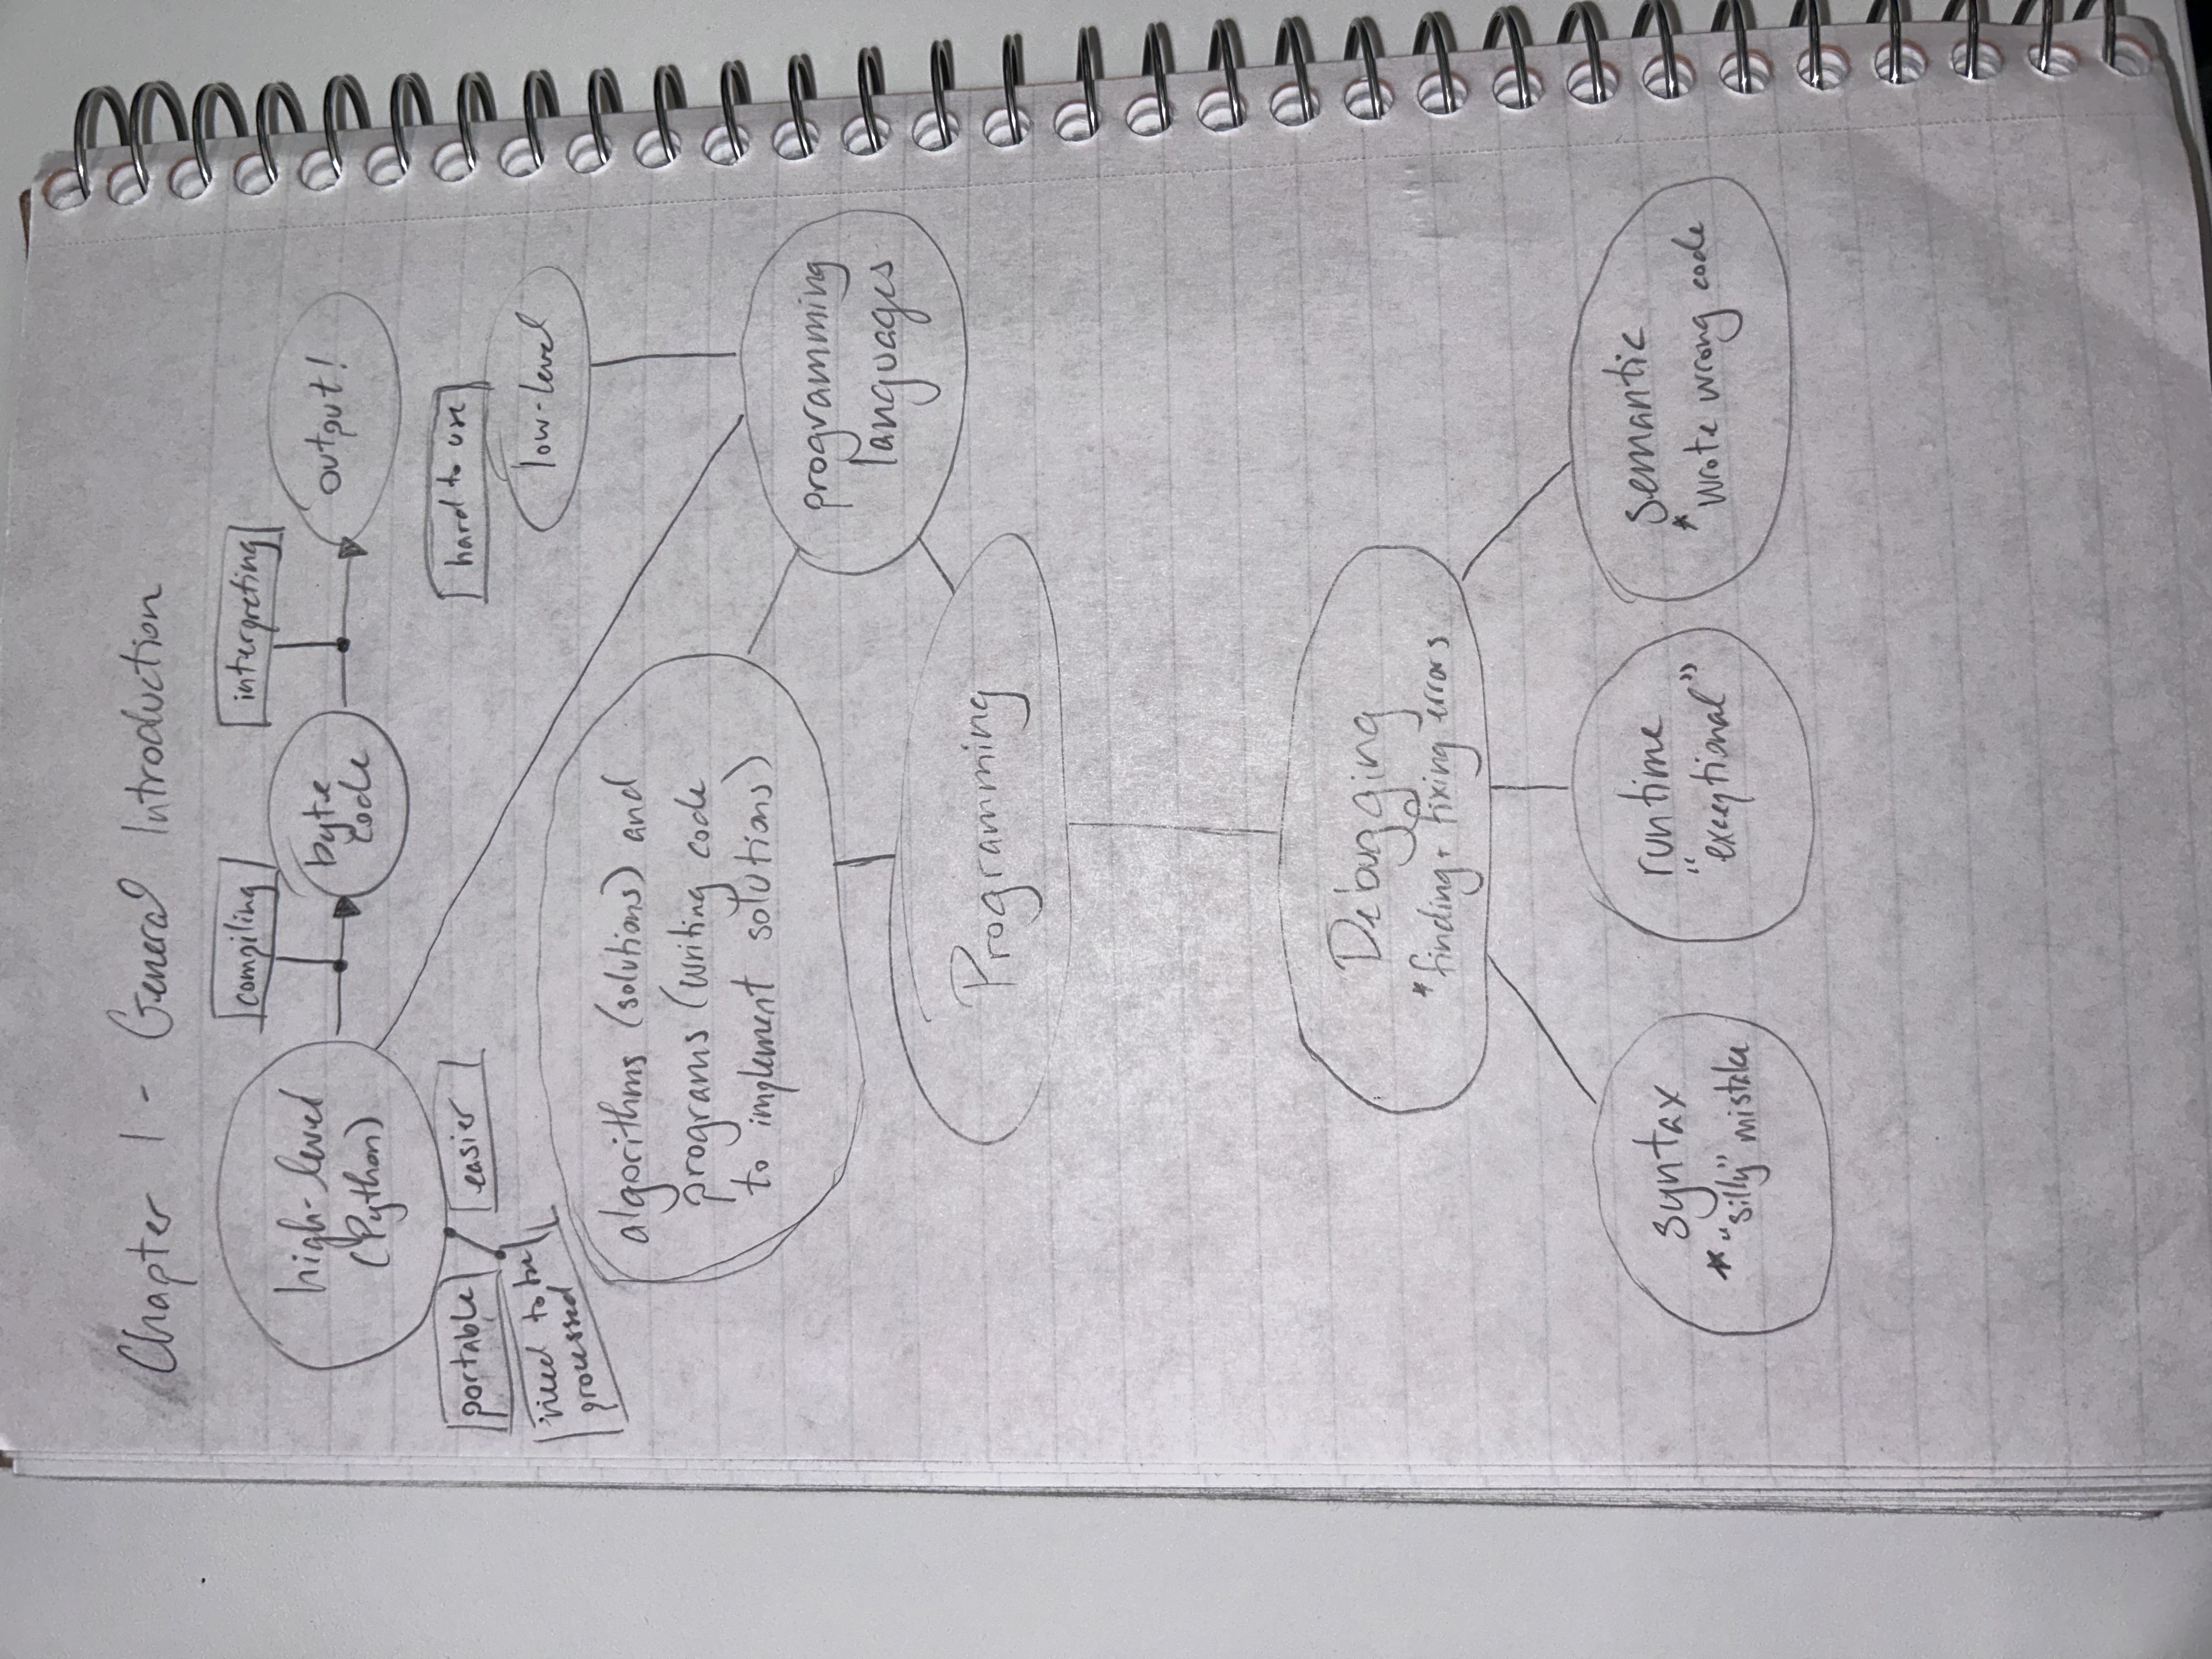 Chapter 1 - General Introduction
compiling
interpreting
high-level
(Python)
byte
code
output!
portable
easier
hard to use
need to be
processed
low-level
algorithms (solutions) and
programs (writing code
to implement solutions)
programming
languages
Programming
Debugging
*finding + fixing errors
syntax
*"silly" mistake
runtime
"exceptional"
semantic
*wrote wrong code